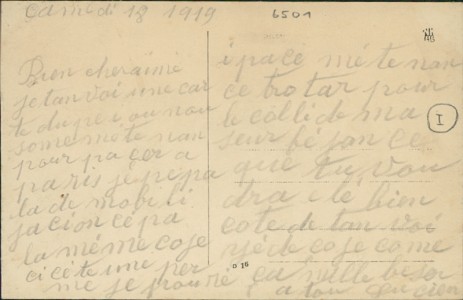 Camedi 18 1919
6501
Bien cher aimé
je tan voi une car
te du pei ou nou
some mete nan
pour pa çer a
paris je pepa
la de mobili
jacion cé pa
la même cose
ci cète une per
me je pouré
i pacé méte nan
ce tro tar pour
le colli de ma
seur fé san ce
que tu vou
dra e lé bien
cote de tan voi
rjé de cose come
ça mille besou
a tou
I
D 16